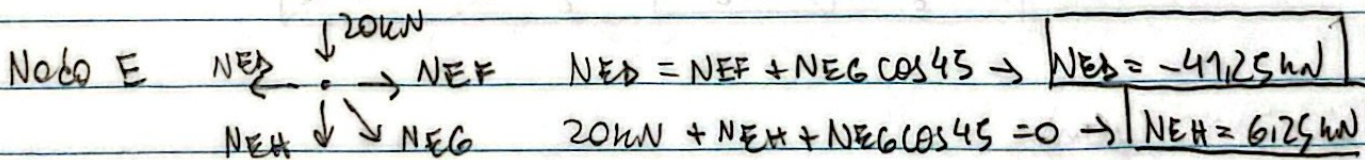 ↓20kN
Nodo E NED ← · → NEF NED = NEF + NEG cos45 → NED = -41,25 kN
NEH ↓ ↘ NEG 20kN + NEH + NEG cos45 = 0 → NEH = 6,25 kN